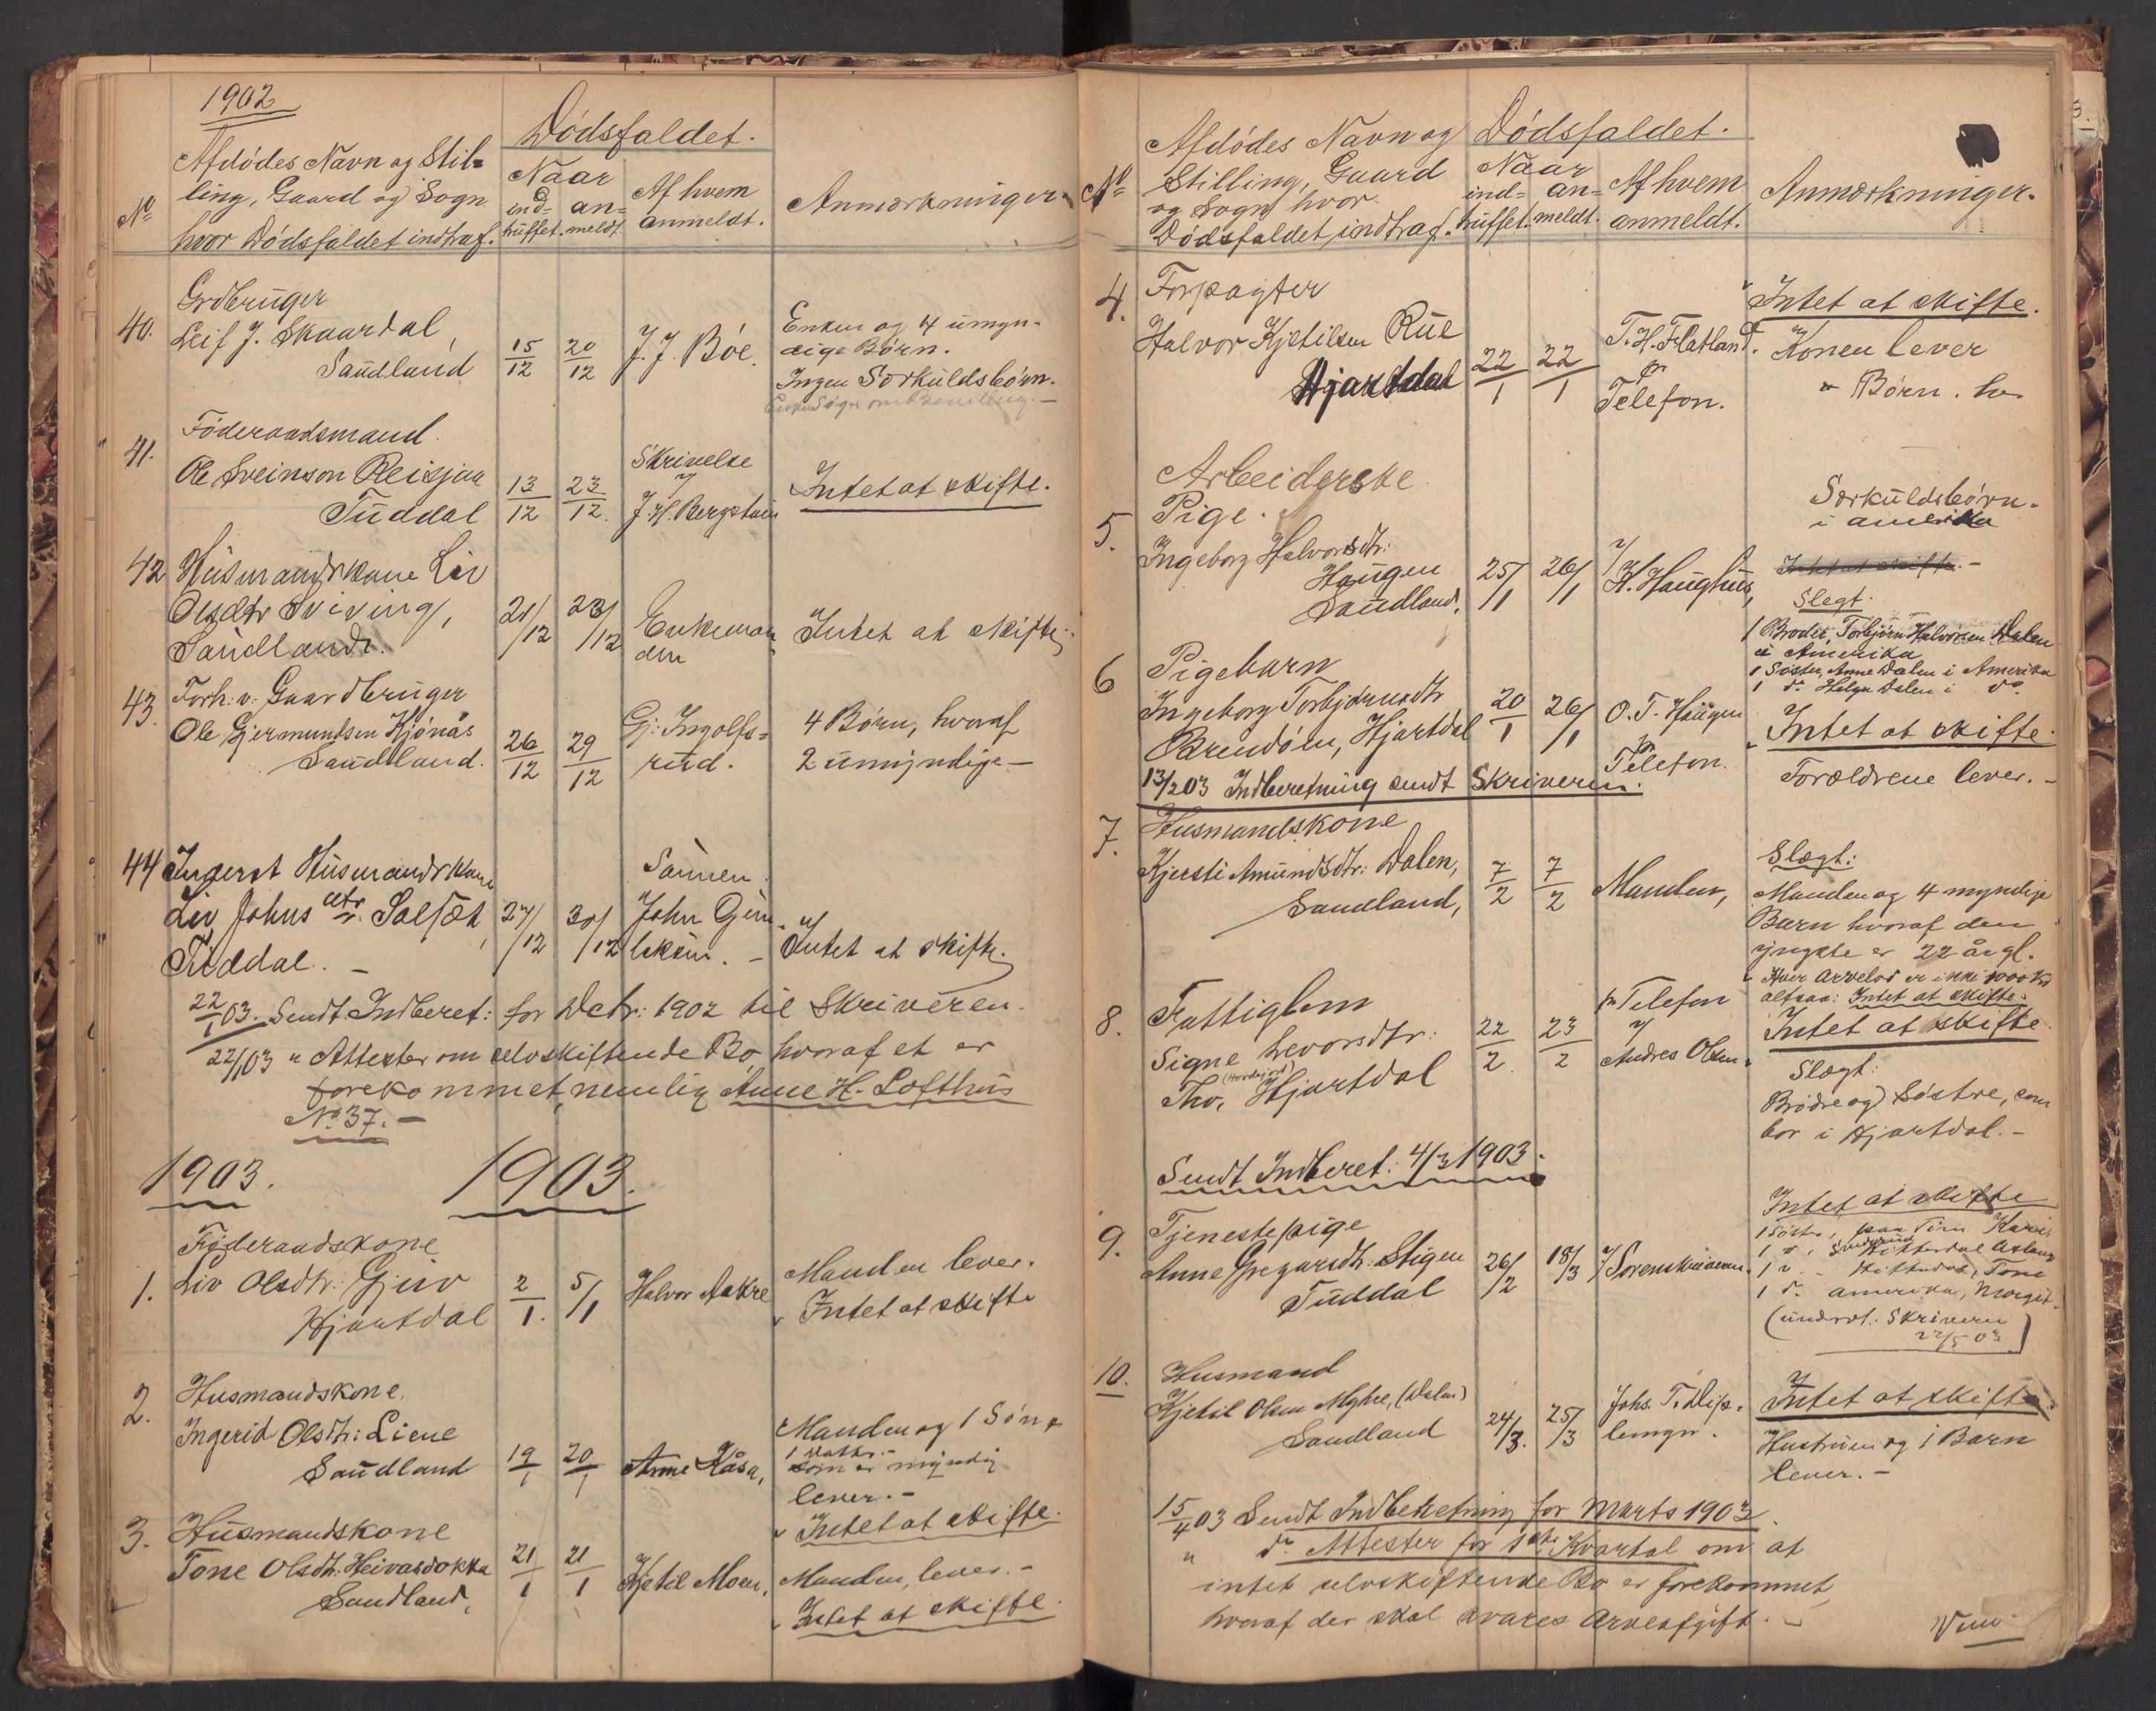 1902
Dødsfaldet.
No
Afdødes Navn og Stil-
ling, Gaard og Sogn
hvor Dødsfaldet indtraf.
Naar
ind- an-
truffet. meldt.
Af hvem
anmeldt.
Anmærkninger.
40.
Grdbruger
Leif J. Skaardal,
Saudland
15/12 20/12
J. J. Bøe.
Enken og 4 umyn-
dige Børn.
Ingen Særkuldsbørn.
41.
Føderaadsmand.
Ole Sveinson Reisjaa
Tuddal
13/12 23/12.
Skrivelse
f/
J. H. Bergstuen
Intet at skifte.
42
Husmandskone Liv
Olsdtr Sviving,
Saudland.
21/12 23/12
Enkeman
den
Intet at skifte.
43.
Forh: v: Gaardbruger
Ole Gjermundsen Hjønås
Saudland.
26/12 29/12
Gj: Ingolfs-
rud.
4 Børn, hvoraf
2 umyndige
44
Inderst Husmandskone
Liv Johns dtr. Solsæt,
Tuddal. -
27/12 30/12
Sønnen.
John Gun-
leksen. -
Intet at skifte.
22/1 03. Sendt Indberet: for Dcbr: 1902 til Skriveren.
22/1 03 " Attester om selvskiftende Bo, hvoraf et er
forekommet, nemlig Anne H. Lofthus
No 37. -
1903. 1903.
1.
Føderaadskone
Liv Olsdtr: Gjuv
Hjartdal
2/1. 5/1
Halvor Aakre
Manden lever.
Intet at skifte
2.
Husmandskone
Ingerid Olsdtr: Liene
Saudland
19/1 20/1
Anne Kåsa,
Manden og 1 Søn &
1 Datter.-
som er myndig
lever. -
Intet at skifte.
3.
Husmandskone
Tone Olsdtr. Heivasdokka
Saudland,
21/1 21/1
Kjetil Moen,
Manden, lever. -
Intet at skifte.
No
Afdødes Navn og
Stilling, Gaard
og Sogn hvor
Dødsfaldet indtraf.
Dødsfaldet.
Naar
ind- an-
truffet. meldt.
Af hvem
anmeldt.
Anmærkninger.
4.
Forpagter
Halvor Kjetilsen Rue
Hjartdal
22/1 22/1
T. H. Flatland.
pr
Telefon.
Intet at skifte.
Konen lever
" Børn.
5.
Arbeiderske
Pige.
Ingeborg Halvorsdtr:
Haugen
Saudland.
25/1 26/1
f/
K. Haughus,
Særkuldsbørn.
i amerika
Intet at skifte. -
Slegt.
1 Broder, Torbjørn Halvorsen Dalen
i Amerika
1 Søster, Anne Dalen i Amerika
1 do Helge Dalen i do
6
Pigebarn
Ingeborg Torbjørnsdtr
Brendøen, Hjartdal
20/1 26/1
O. T. Haugen
pr
Telefon.
Intet at skifte.
Forældrene lever. -
13/2 03 Indberetning sendt Skriveren.
7.
Husmandskone
Kjersti Amundsdtr: Dalen,
Saudland,
7/2 7/2
Manden,
Slægt:
Manden og 4 myndige
Børn hvoraf den
yngste er 22 år gl.
Hver Arvelod er ikke 1000 Kr
altsaa: Intet at skifte.
8.
Fattiglem
Signe Levorsdtr:
(Hordejord)
Tho, Hjartdal
22/2. 23/2
pr Telefon
f/
Andres Olsen
Intet at skifte.
Slægt:
Brødre og Søstre, som
bor i Hjartdal. -
Sendt Indberet: 4/3 1903.
9.
Tjenestepige
Anne Gregarsdtr. Stigen
Tuddal
26/2 18/3
f/ Sorenskriveren.
Intet at skifte
1 Søster, paa Tinn Kari
1 " , Hitterdal Aslaug
1 " - Hitterdal, Tone
1 do amerika, Margit.
(underret. Skriveren
22/5 03)
10.
Husmand
Kjetil Olsen Myhre, (Dalen)
Saudland
24/3. 25/3
Johs. T. Dip-
lemyr.
Intet at skifte.
Hustruen og 1 Barn
lever. -
15/4 03 Sendt Indberetning for Marts 1903.
" do Attester for 1ste Kvartal om at
intet selvskiftende Bo er forekommet,
hvoraf der skal svares Arveafgift. -